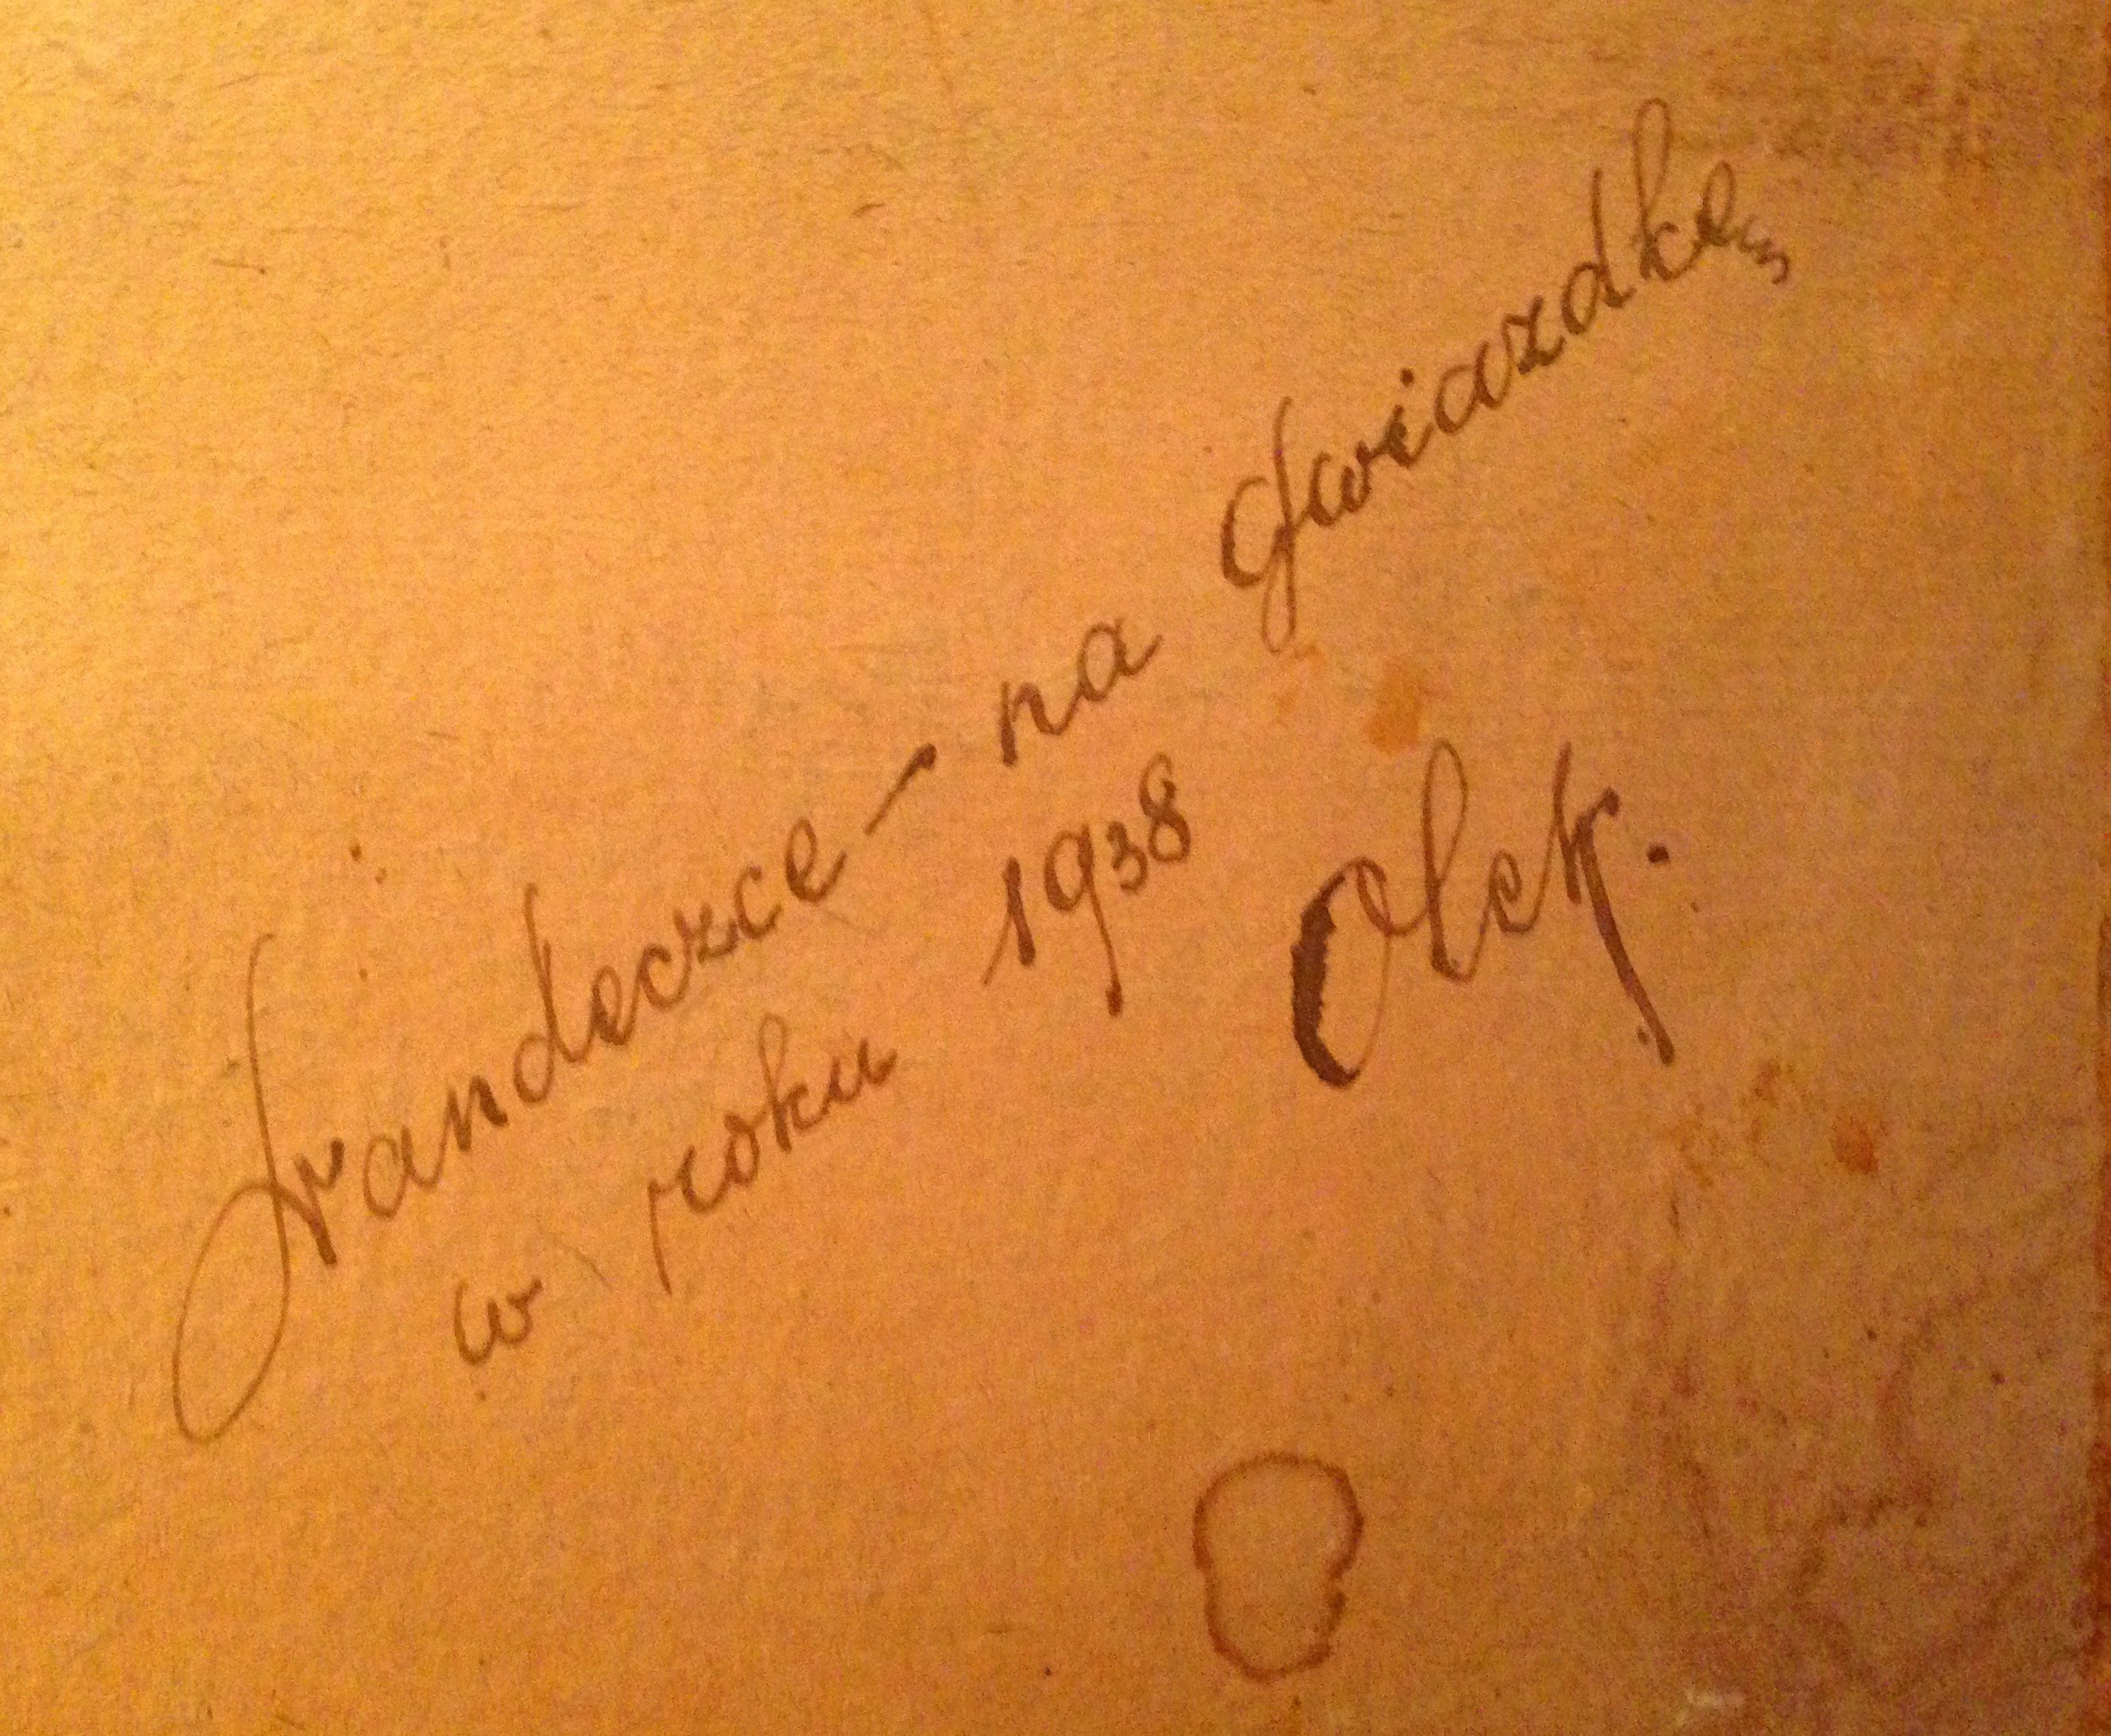 Wandeczce – na Gwiazdkę
w roku 1938
Olek.